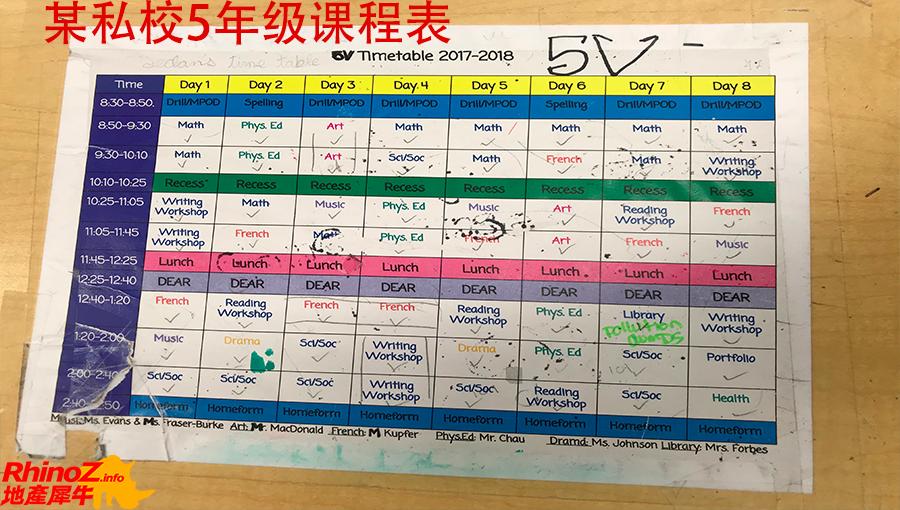 某私校5年级课程表
5V Timetable 2017-2018 5V
Time Day 1 Day 2 Day 3 Day 4 Day 5 Day 6 Day 7 Day 8
8:30-8:50 Drill/MPOD Spelling Drill/MPOD Drill/MPOD Drill/MPOD Spelling Drill/MPOD Drill/MPOD
8:50-9:30 Math Phys. Ed Art Math Math Math Math Math
9:30-10:10 Math Phys. Ed Art Sci/Soc Math French Math Writing Workshop
10:10-10:25 Recess Recess Recess Recess Recess Recess Recess Recess
10:25-11:05 Writing Workshop Math Music Phys. Ed Music Art Reading Workshop French
11:05-11:45 Writing Workshop French Math Phys. Ed French Art French Music
11:45-12:25 Lunch Lunch Lunch Lunch Lunch Lunch Lunch Lunch
12:25-12:40 DEAR DEAR DEAR DEAR DEAR DEAR DEAR DEAR
12:40-1:20 French Reading Workshop French French Reading Workshop Phys. Ed Library Writing Workshop
1:20-2:00 Music Drama Sci/Soc Writing Workshop Drama Phys. Ed Sci/Soc Portfolio
2:00-2:40 Sci/Soc Sci/Soc Sci/Soc Writing Workshop Sci/Soc Reading Workshop Sci/Soc Health
2:40-2:50 Homeform Homeform Homeform Homeform Homeform Homeform Homeform Homeform
Ms. Evans & Ms. Fraser-Burke Art: Mr. MacDonald French: M Kupfer Phys.Ed: Mr. Chau Drama: Ms. Johnson Library: Mrs. Forbes
RhinoZ.info
地產犀牛